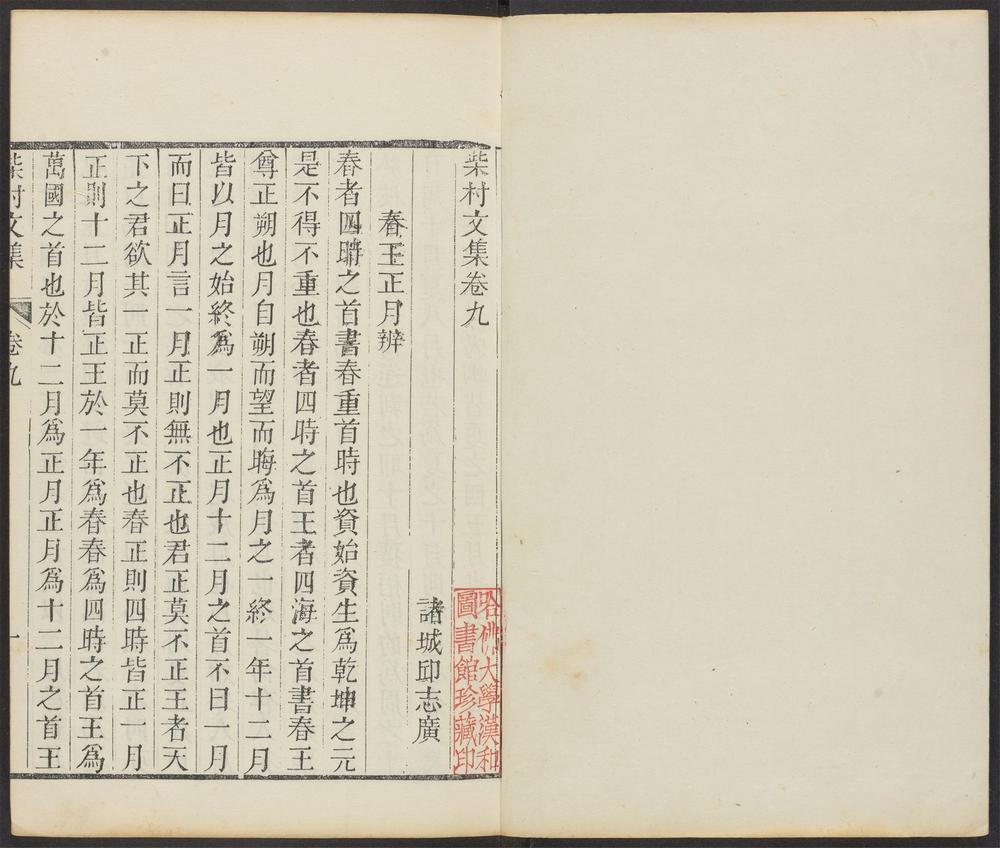 柴村文集卷九
諸城邱志廣
春王正月辨
春者四時之首書春重首時也資始資生爲乾坤之元
是不得不重也春者四時之首王者四海之首書春王
尊正朔也月自朔而望而晦爲月之一終一年十二月
皆以月之始終爲一月也正月十二月之首不曰一月
而曰正月言一月正則無不正也君正莫不正王者天
下之君欲其一正而莫不正也春正則四時皆正一月
正則十二月皆正王於一年爲春春爲四時之首王爲
萬國之首也於十二月爲正月正月爲十二月之首王
柴村文集
卷九
一
哈佛大學漢和
圖書館珍藏印